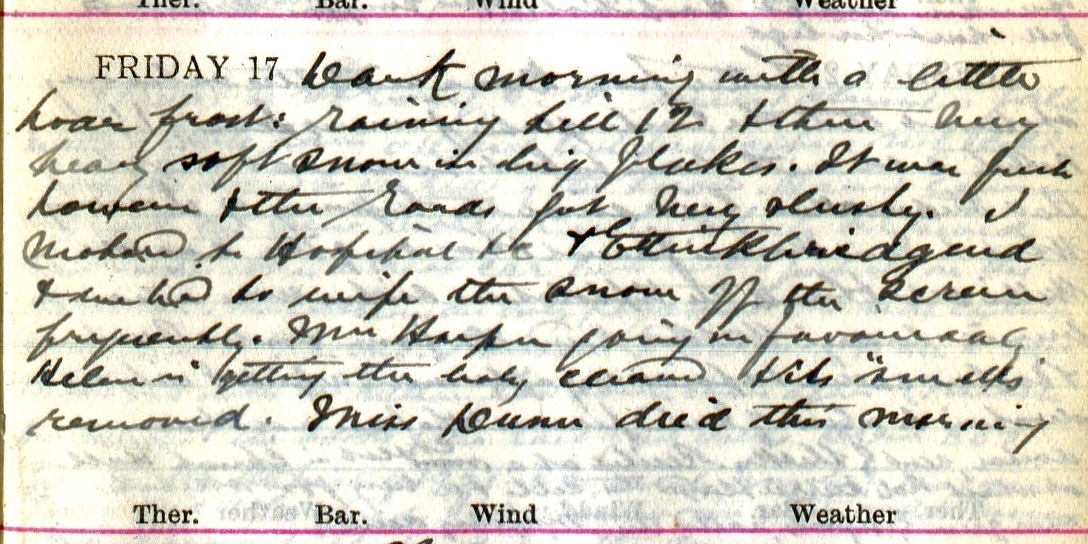 Ther. Bar. Wind Weather
FRIDAY 17 Dark morning with a little
hoar frost: raining till 12 & then very
heavy soft snow in big flakes. It was fresh
however & the roads got very slushy. I
motored to Hospital &c & Ettrickbridgend
& we had to wipe the snow off the screen
frequently. Mrs Harper going on favourably
Helen is getting the baby cleaned & its "smells"
removed. Miss Dunn died this morning
Ther. Bar. Wind Weather